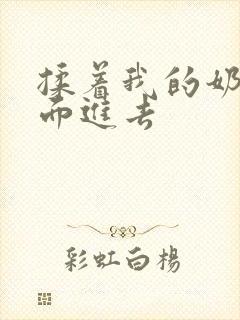 揉着我的奶
而进去
彩虹白楊